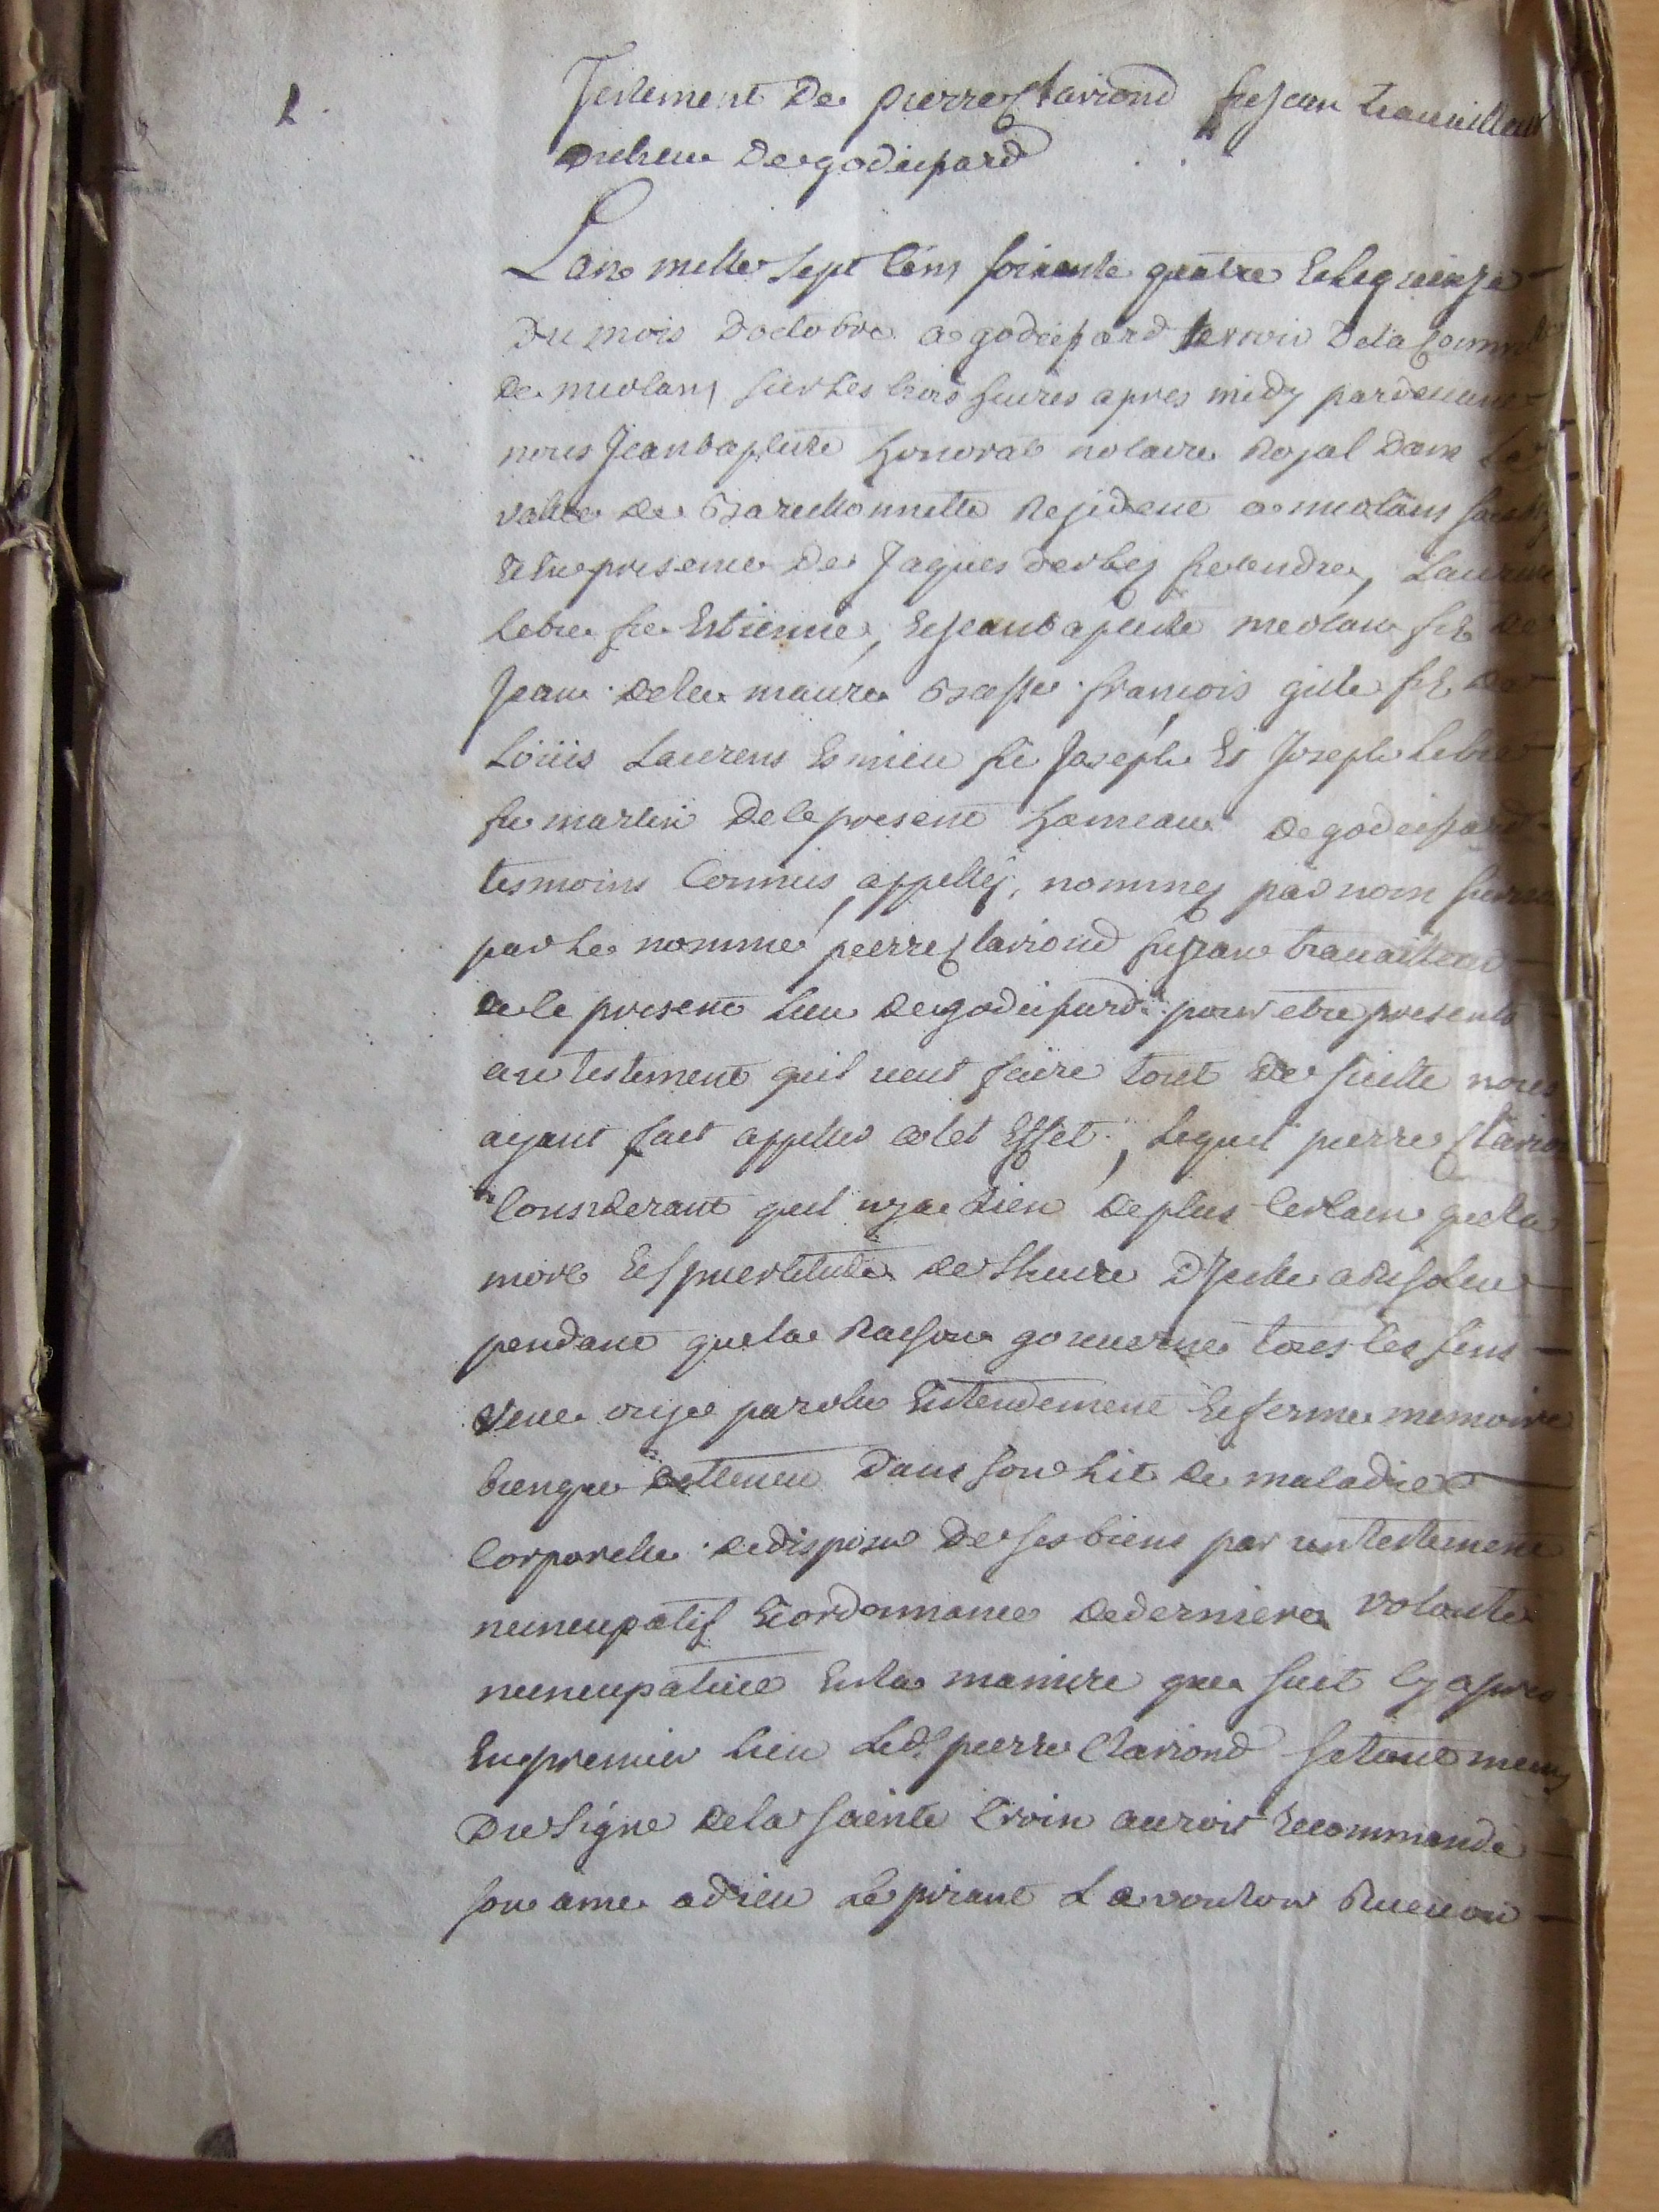 Testement De pierre Clariond fu Jean travailleur
du lieu De godeipard
L'an mille sept cens soixante quatre et le quinze
Du mois D'octobre a godeipard terroir De la Commté
De meolans sur les trois heures apres midy pardevant
nous Jean baptiste honorat notaire Royal Dans la
vallée de Barcellonnette Resident a meolans
et En presence De Jaques derbez fu andre, Laurens
Lebre fu Estienne, et Jean baptiste meolan fils de
Jean de la maure Basse françois gilli fils de
Loüis Laurens Esmieu fu Joseph Et Joseph Lebre
fu martin De le present hameau De godeipard
tesmoins Connus, appellez, nommez par nom surnom
par Le nommé pierre Clariond fu Jean travailleur
de le present lieu De godeipard pour etre presents
au testement qu'il veut faire tout de suitte nous
ayant fait appeller a cet Effet, Lequel pierre Clariond
Considerant qu'il n'y a Rien De plus Certain que la
mort Et l'incertitude de L'heure D'jcelle a Resoleu
pendant que la Raison gouverne tous les sens
veue ouye parolle Entendement Et ferme memoire
bien que detteneu Dans son Lit de maladie
Corporelle de disposer De ses biens par un testement
nuncupatif Et ordonnance de derniere volonté
nuncupative En la maniere que suit cy apres
En premier lieu Led. pierre Clariond s'etant meuni
Du Signe De la Sainte Croix auroit recommandé
son ame a dieu Le priant La vouloir Recevoir